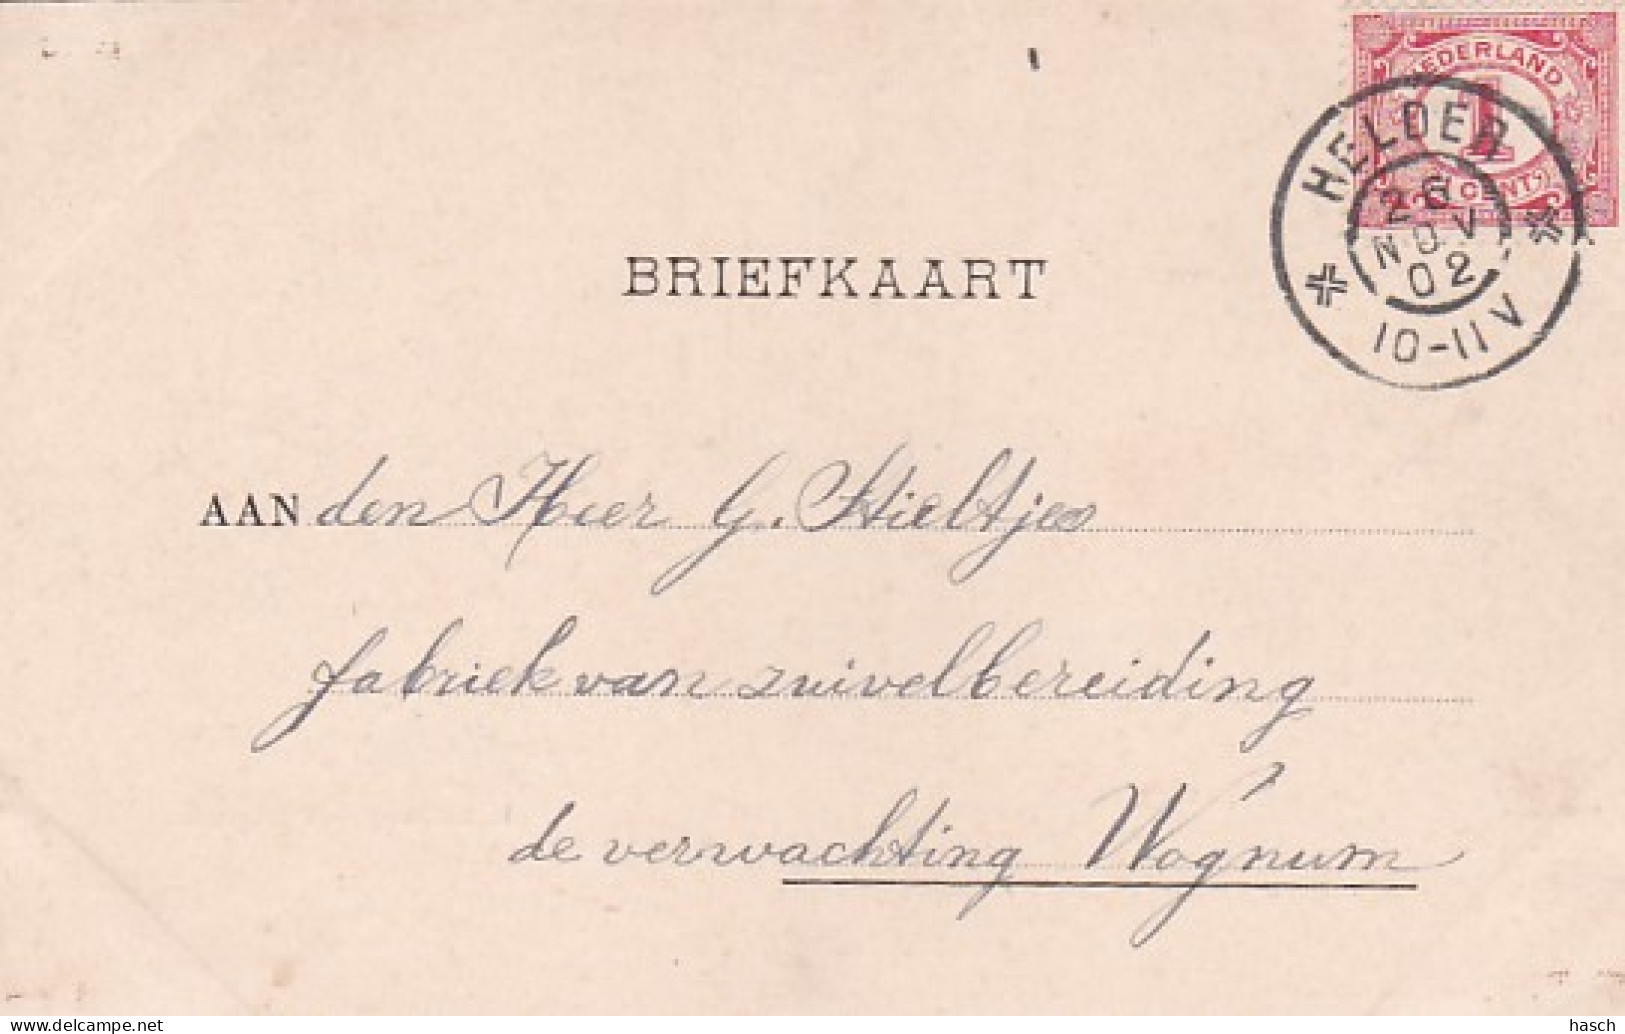 NEDERLAND
1
CENT
HELDER
26
NOV
02
10-11 V
BRIEFKAART
AAN den Heer G. Stieltjes
fabriek van zuivelbereiding
de verwachting Wognum
www.delcampe.net
hasch